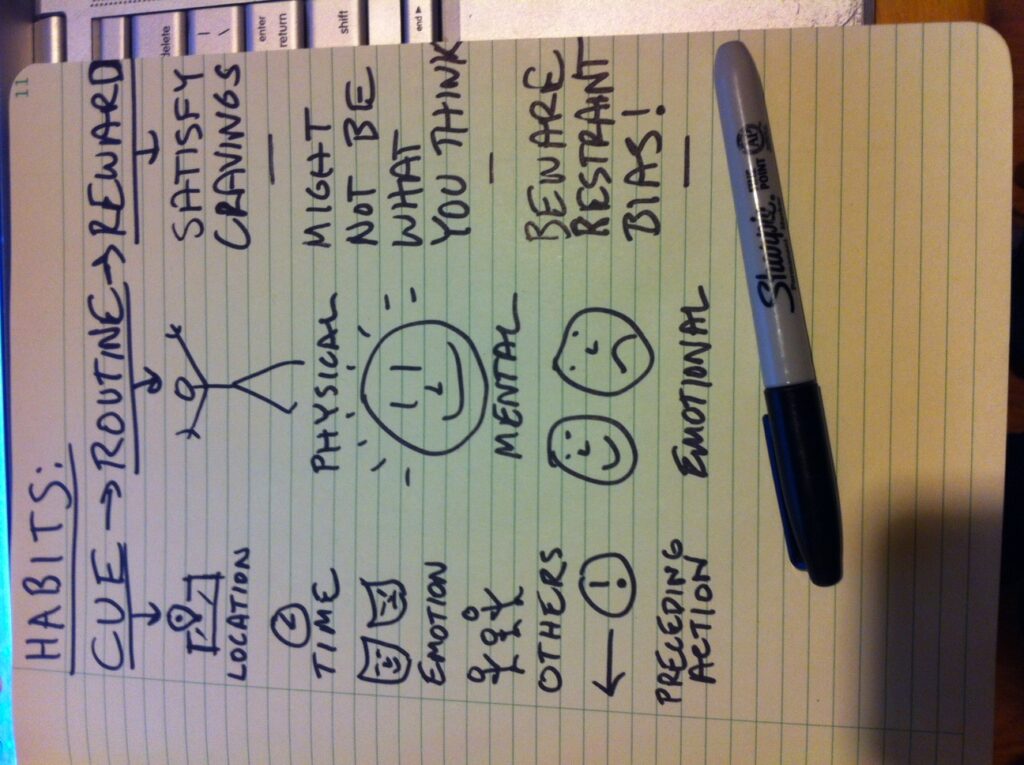 11
HABITS:
CUE → ROUTINE → REWARD
LOCATION
TIME
EMOTION
OTHERS
PRECEDING
ACTION
PHYSICAL
MENTAL
EMOTIONAL
SATISFY
CRAVINGS
—
MIGHT
NOT BE
WHAT
YOU THINK
—
BEWARE
RESTRAINT
BIAS!
—
Sharpie
delete
| \
enter
return
shift
end